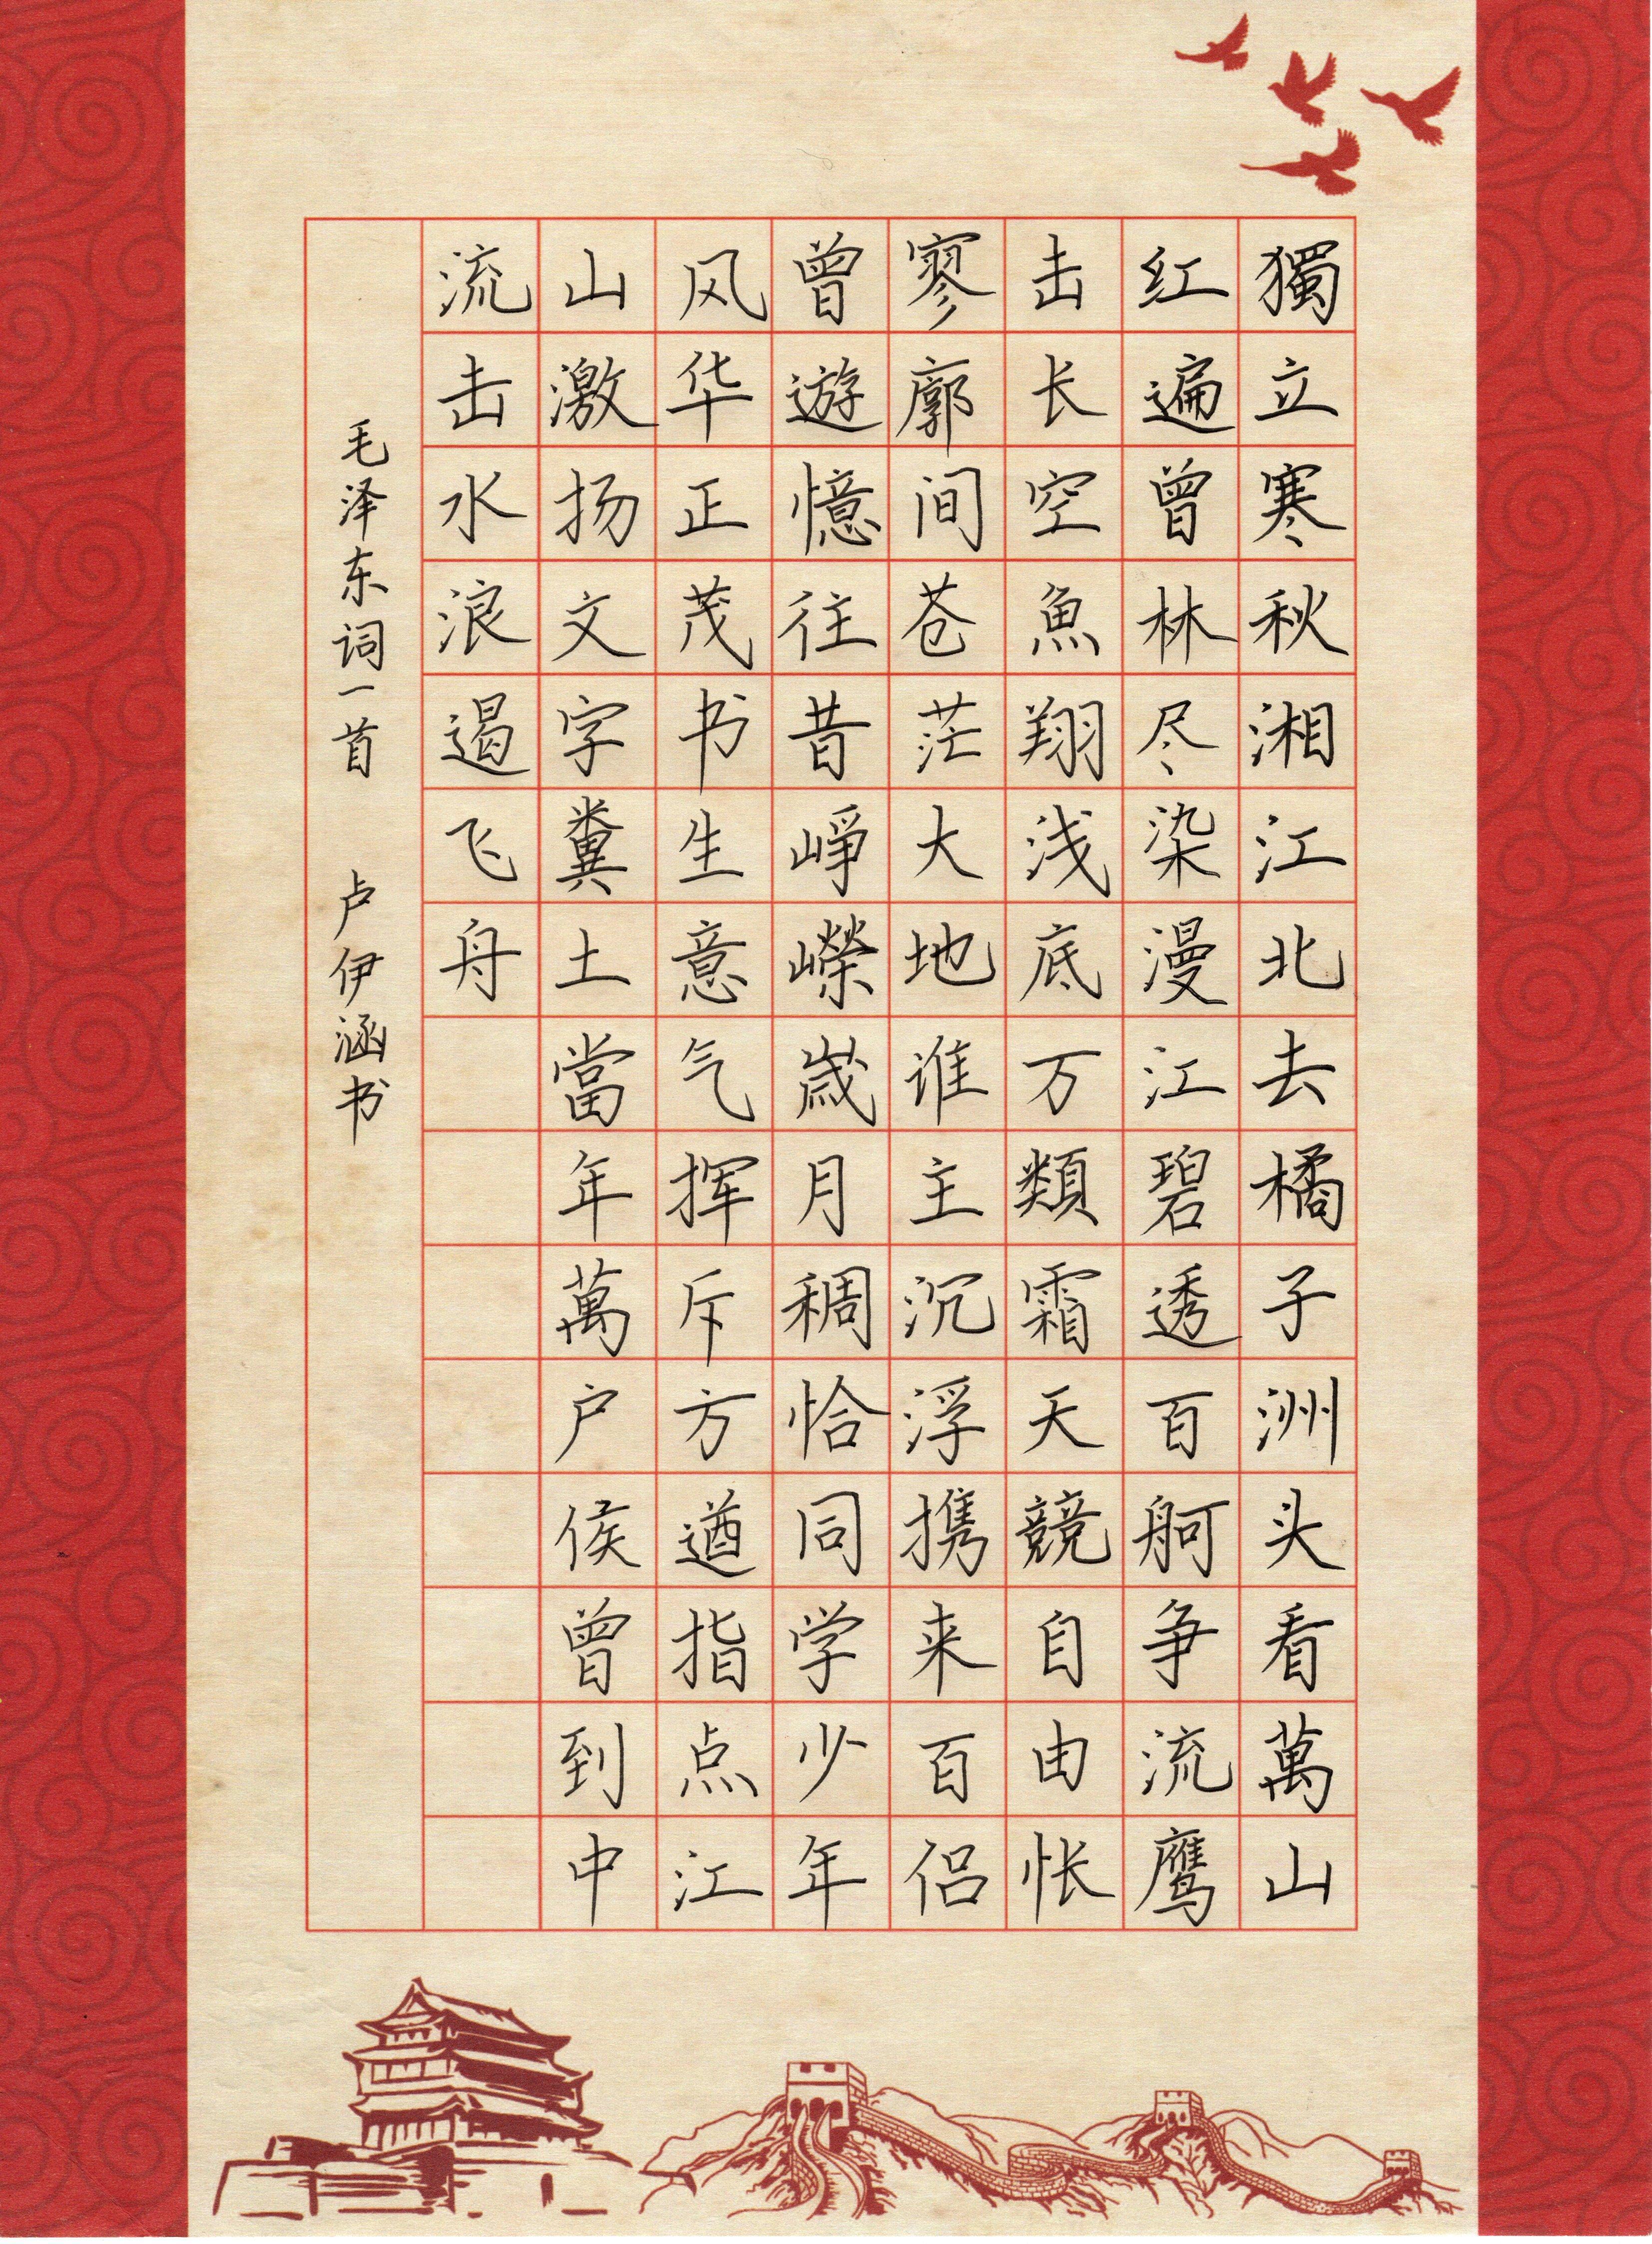 獨立寒秋湘江北去橘子洲头看萬山
红遍曾林尽染漫江碧透百舸争流鹰
击长空魚翔浅底万類霜天競自由怅
寥廓间苍茫大地谁主沉浮携来百侣
曾遊憶往昔峥嵘歳月稠恰同学少年
风华正茂书生意气挥斥方遒指点江
山激扬文字糞土當年萬户侯曾到中
流击水浪遏飞舟
毛泽东词一首 卢伊涵书